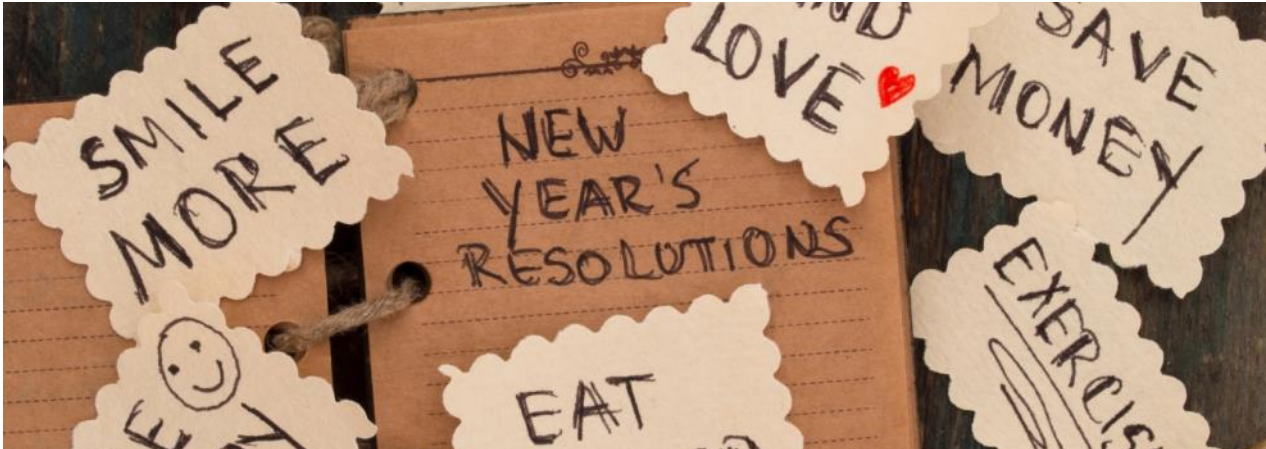 SMILE
MORE
NEW
YEAR'S
RESOLUTIONS
LOVE
SAVE
MONEY
EXERCIS
EAT